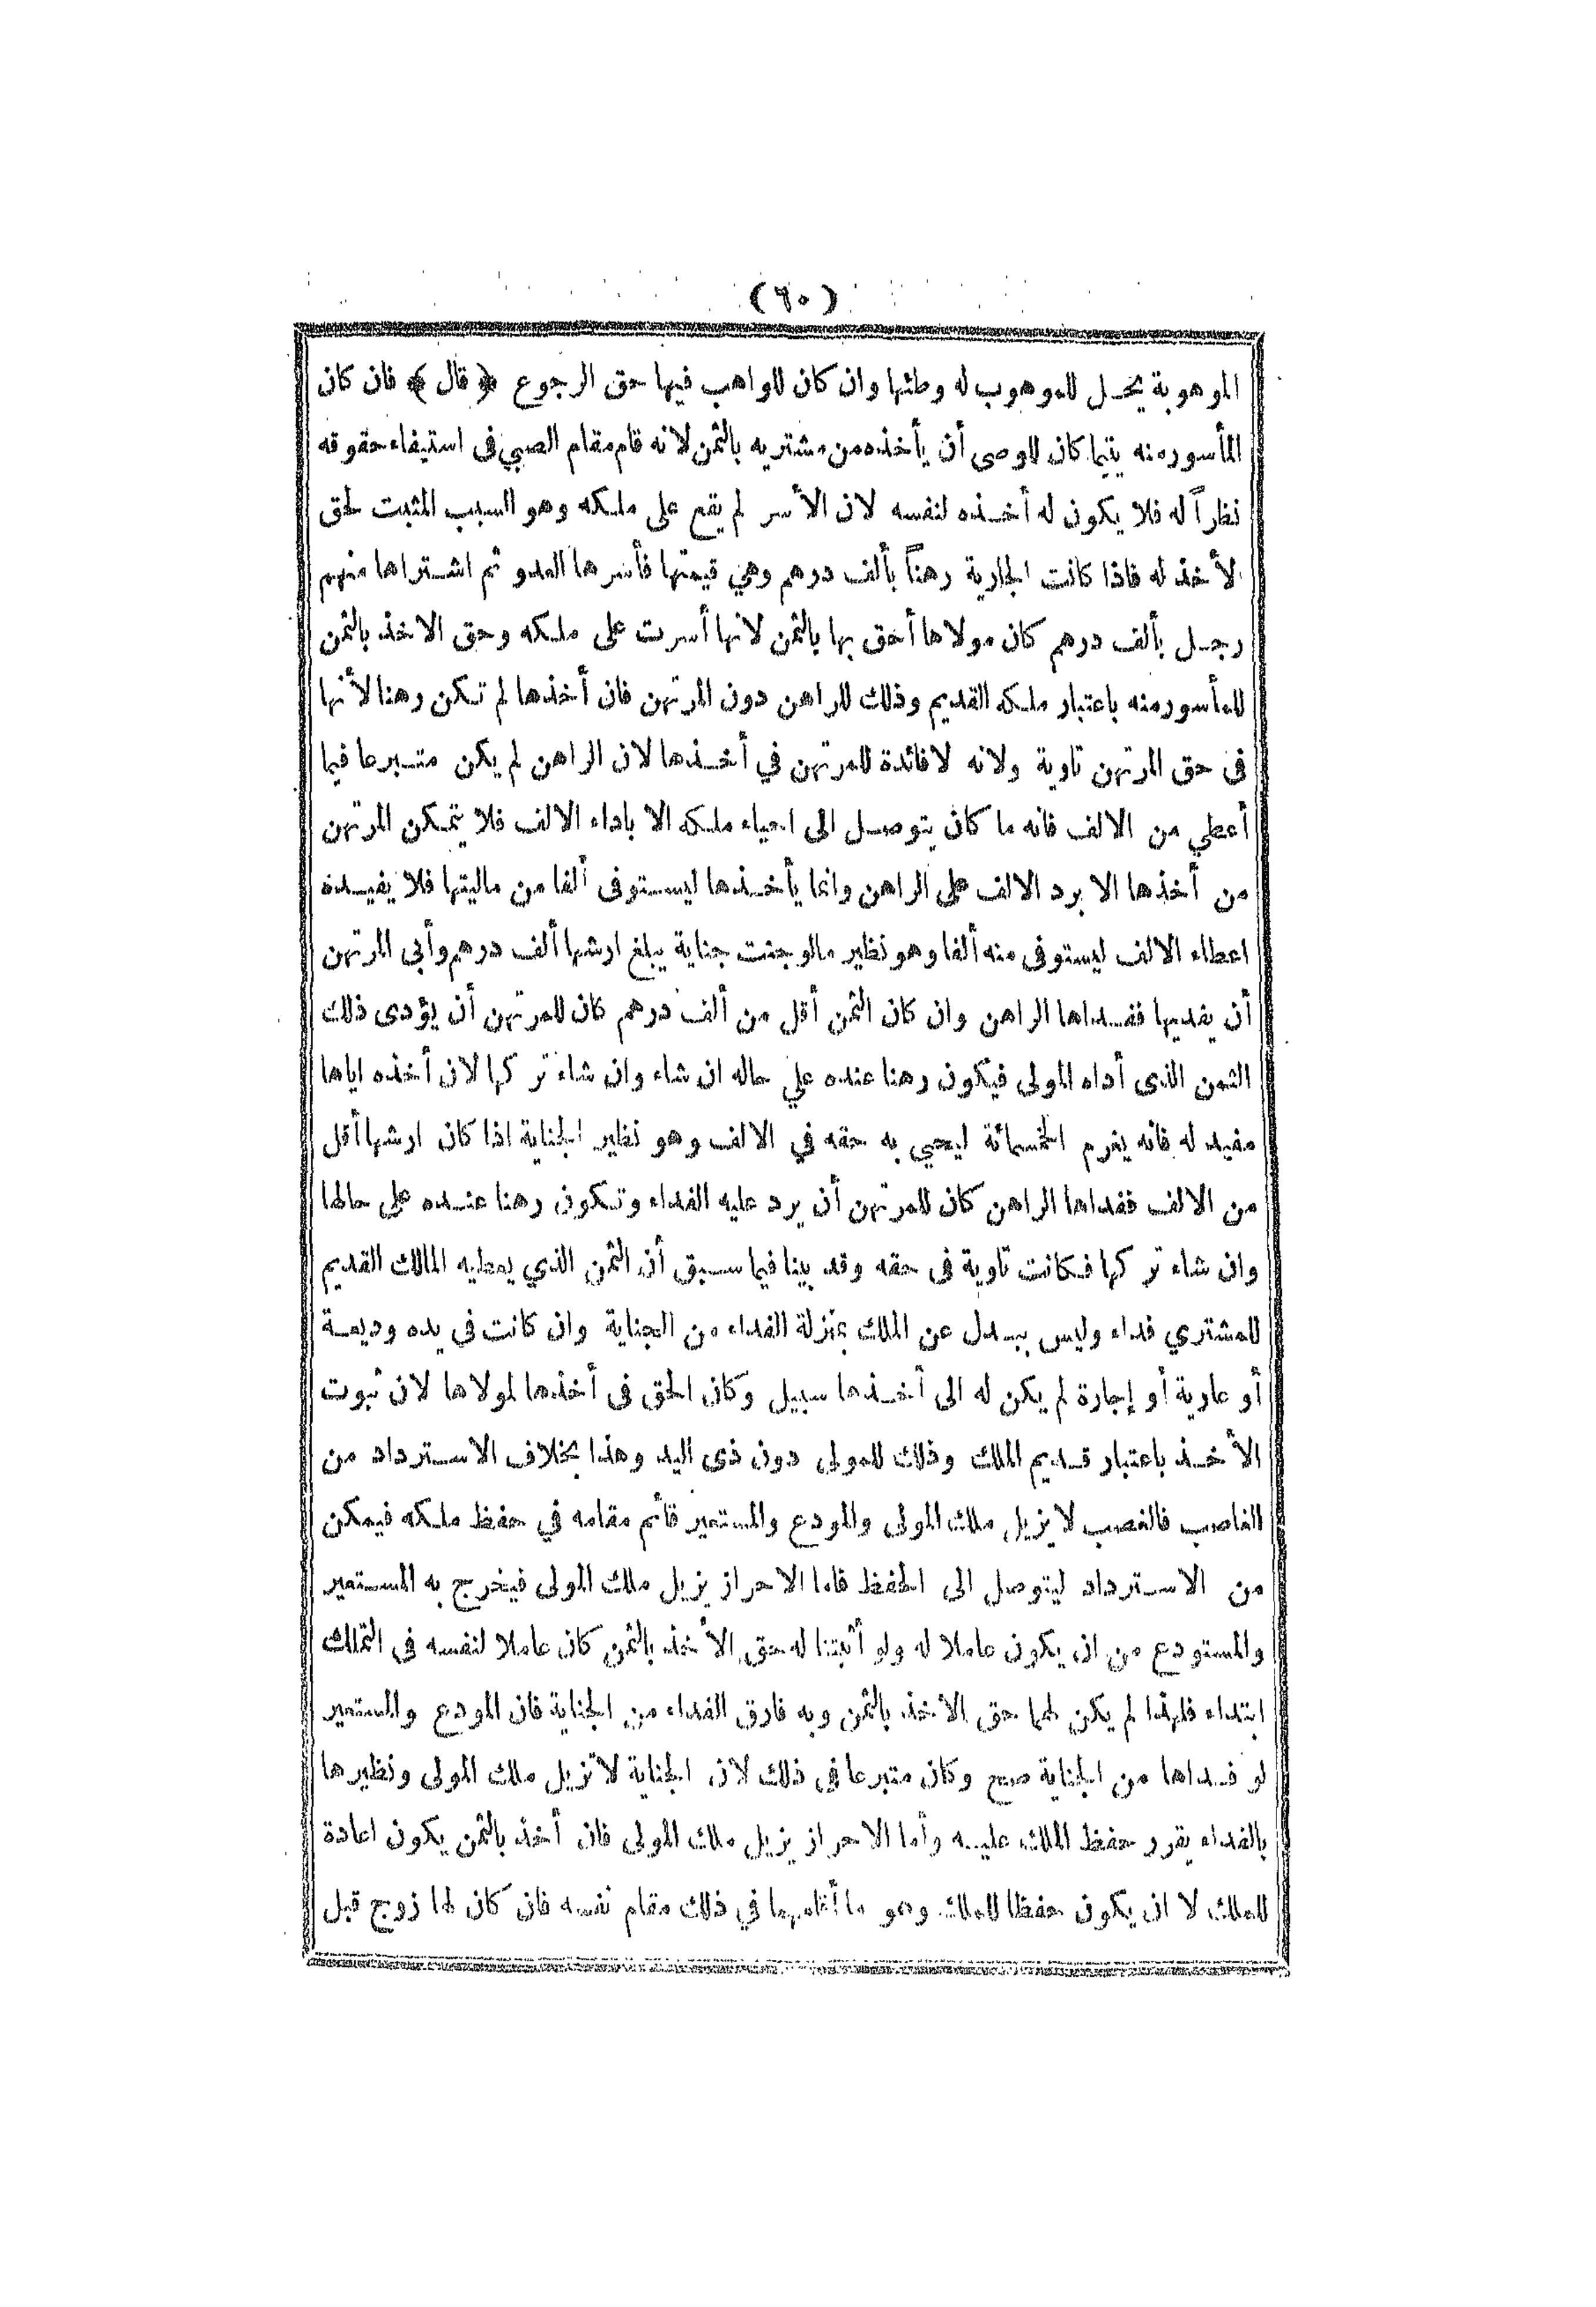 (٦٠)
الموهوبة يحل للموهوب له وطئها وان كان للواهب فيها حق الرجوع ﴿ قال ﴾ فان كان
المأسور منه يتيما كان للوصى أن يأخذه من مشتريه بالثمن لانه قام مقام الصبي فى استيفاء حقوقه
نظراً له فلا يكون له أخذه لنفسه لان الأسر لم يقع على ملكه وهو السبب المثبت لحق
الأخذ له فاذا كانت الجارية رهناً بألف درهم وهي قيمتها فأسرها العدو ثم اشتراها منهم
رجل بألف درهم كان مولاها أحق بها بالثمن لانها أسرت على ملكه وحق الاخذ بالثمن
للمأسور منه باعتبار ملكه القديم وذلك للراهن دون المرتهن فان أخذها لم تكن رهنا لأنها
فى حق المرتهن تاوية ولانه لا فائدة للمرتهن في أخذها لان الراهن لم يكن متبرعا فيما
أعطي من الالف فانه ما كان يتوصل الى احياء ملكه الا باداء الالف فلا يتمكن المرتهن
من أخذها الا برد الالف على الراهن وانما يأخذها ليستوفى ألفا من ماليتها فلا يفيده
اعطاء الالف ليستوفى منه ألفا وهو نظير مالو جنت جناية يبلغ ارشها ألف درهم وأبى المرتهن
أن يفديها ففداها الراهن وان كان الثمن أقل من ألف درهم كان للمرتهن أن يؤدى ذلك
الثمن الذى أداه المولى فيكون رهنا عنده علي حاله ان شاء وان شاء تركها لان أخذه اياها
مفيد له فانه يغرم الخمسمائة ليحيي به حقه في الالف وهو نظير الجناية اذا كان ارشها أقل
من الالف ففداها الراهن كان للمرتهن أن يرد عليه الفداء وتكون رهنا عنده على حالها
وان شاء تركها فكانت تاوية فى حقه وقد بينا فيما سبق أن الثمن الذي يعطيه المالك القديم
للمشتري فداء وليس ببدل عن الملك بمنزلة الفداء من الجناية وان كانت في يده وديعة
أو عارية أو إجارة لم يكن له الى أخذها سبيل وكان الحق فى أخذها لمولاها لان ثبوت
الأخذ باعتبار قديم الملك وذلك للمولى دون ذى اليد وهذا بخلاف الاسترداد من
الغاصب فالغصب لا يزيل ملك المولى والمودع والمستعير قائم مقامه في حفظ ملكه فيمكن
من الاسترداد ليتوصل الى الحفظ فاما الاحراز يزيل ملك المولى فيخرج به المستعير
والمستودع من ان يكون عاملا له ولو أثبتنا له حق الأخذ بالثمن كان عاملا لنفسه فى التملك
ابتداء فلهذا لم يكن لهما حق الاخذ بالثمن وبه فارق الفداء من الجناية فان المودع والمستعير
لو فداها من الجناية صح وكان متبرعا في ذلك لان الجناية لا تزيل ملك المولى ونظيرها
بالفداء يقرر حفظ الملك عليه وأما الاحراز يزيل ملك المولى فان أخذ بالثمن يكون اعادة
للملك لا ان يكون حفظا للملك وهو ما أقامهما في ذلك مقام نفسه فان كان لها زوج قبل